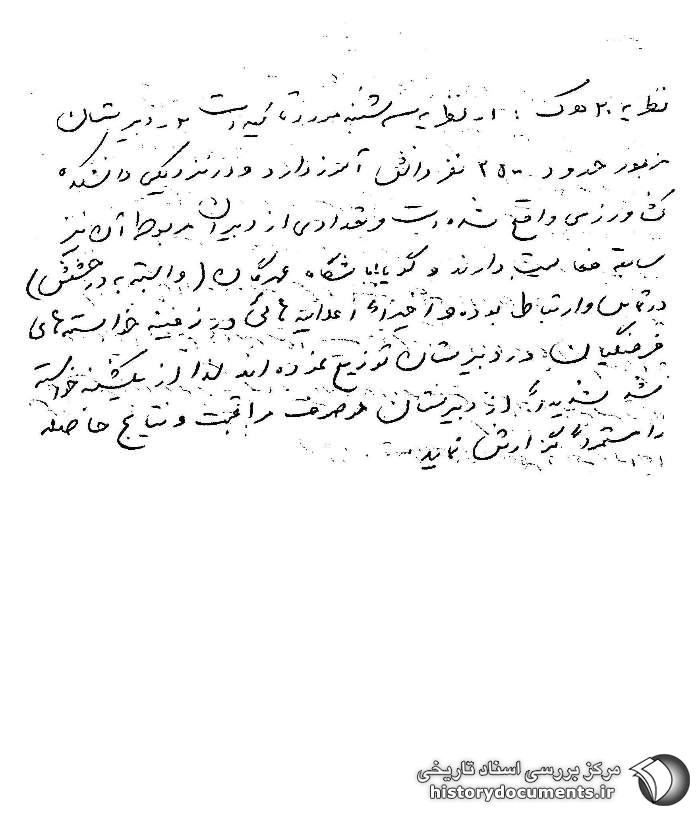 نظریه ۲۰ هـ ک : از نظریه سه شنبه مورد تائید است. دبیرستان
مزبور حدود ۲۵۰۰ نفر دانش آموز دارد و در نزدیکی دانشکده
کشاورزی واقع شده است و تعدادی از دبیران مربوط آن نیز
سابقه فعالیت دارند و گویا با باشگاه مهرگان (وابسته به درخشش)
در تماس و ارتباط بوده و اخیراً اعلامیه هائی در زمینه خواسته های
فرهنگیان در دبیرستان توزیع نموده اند لذا از یکشنبه خواسته
شد شدیداً از دبیرستان مراقبت و نتایج حاصله
را مستمراً گزارش نماید
مرکز بررسی اسناد تاریخی
historydocuments.ir